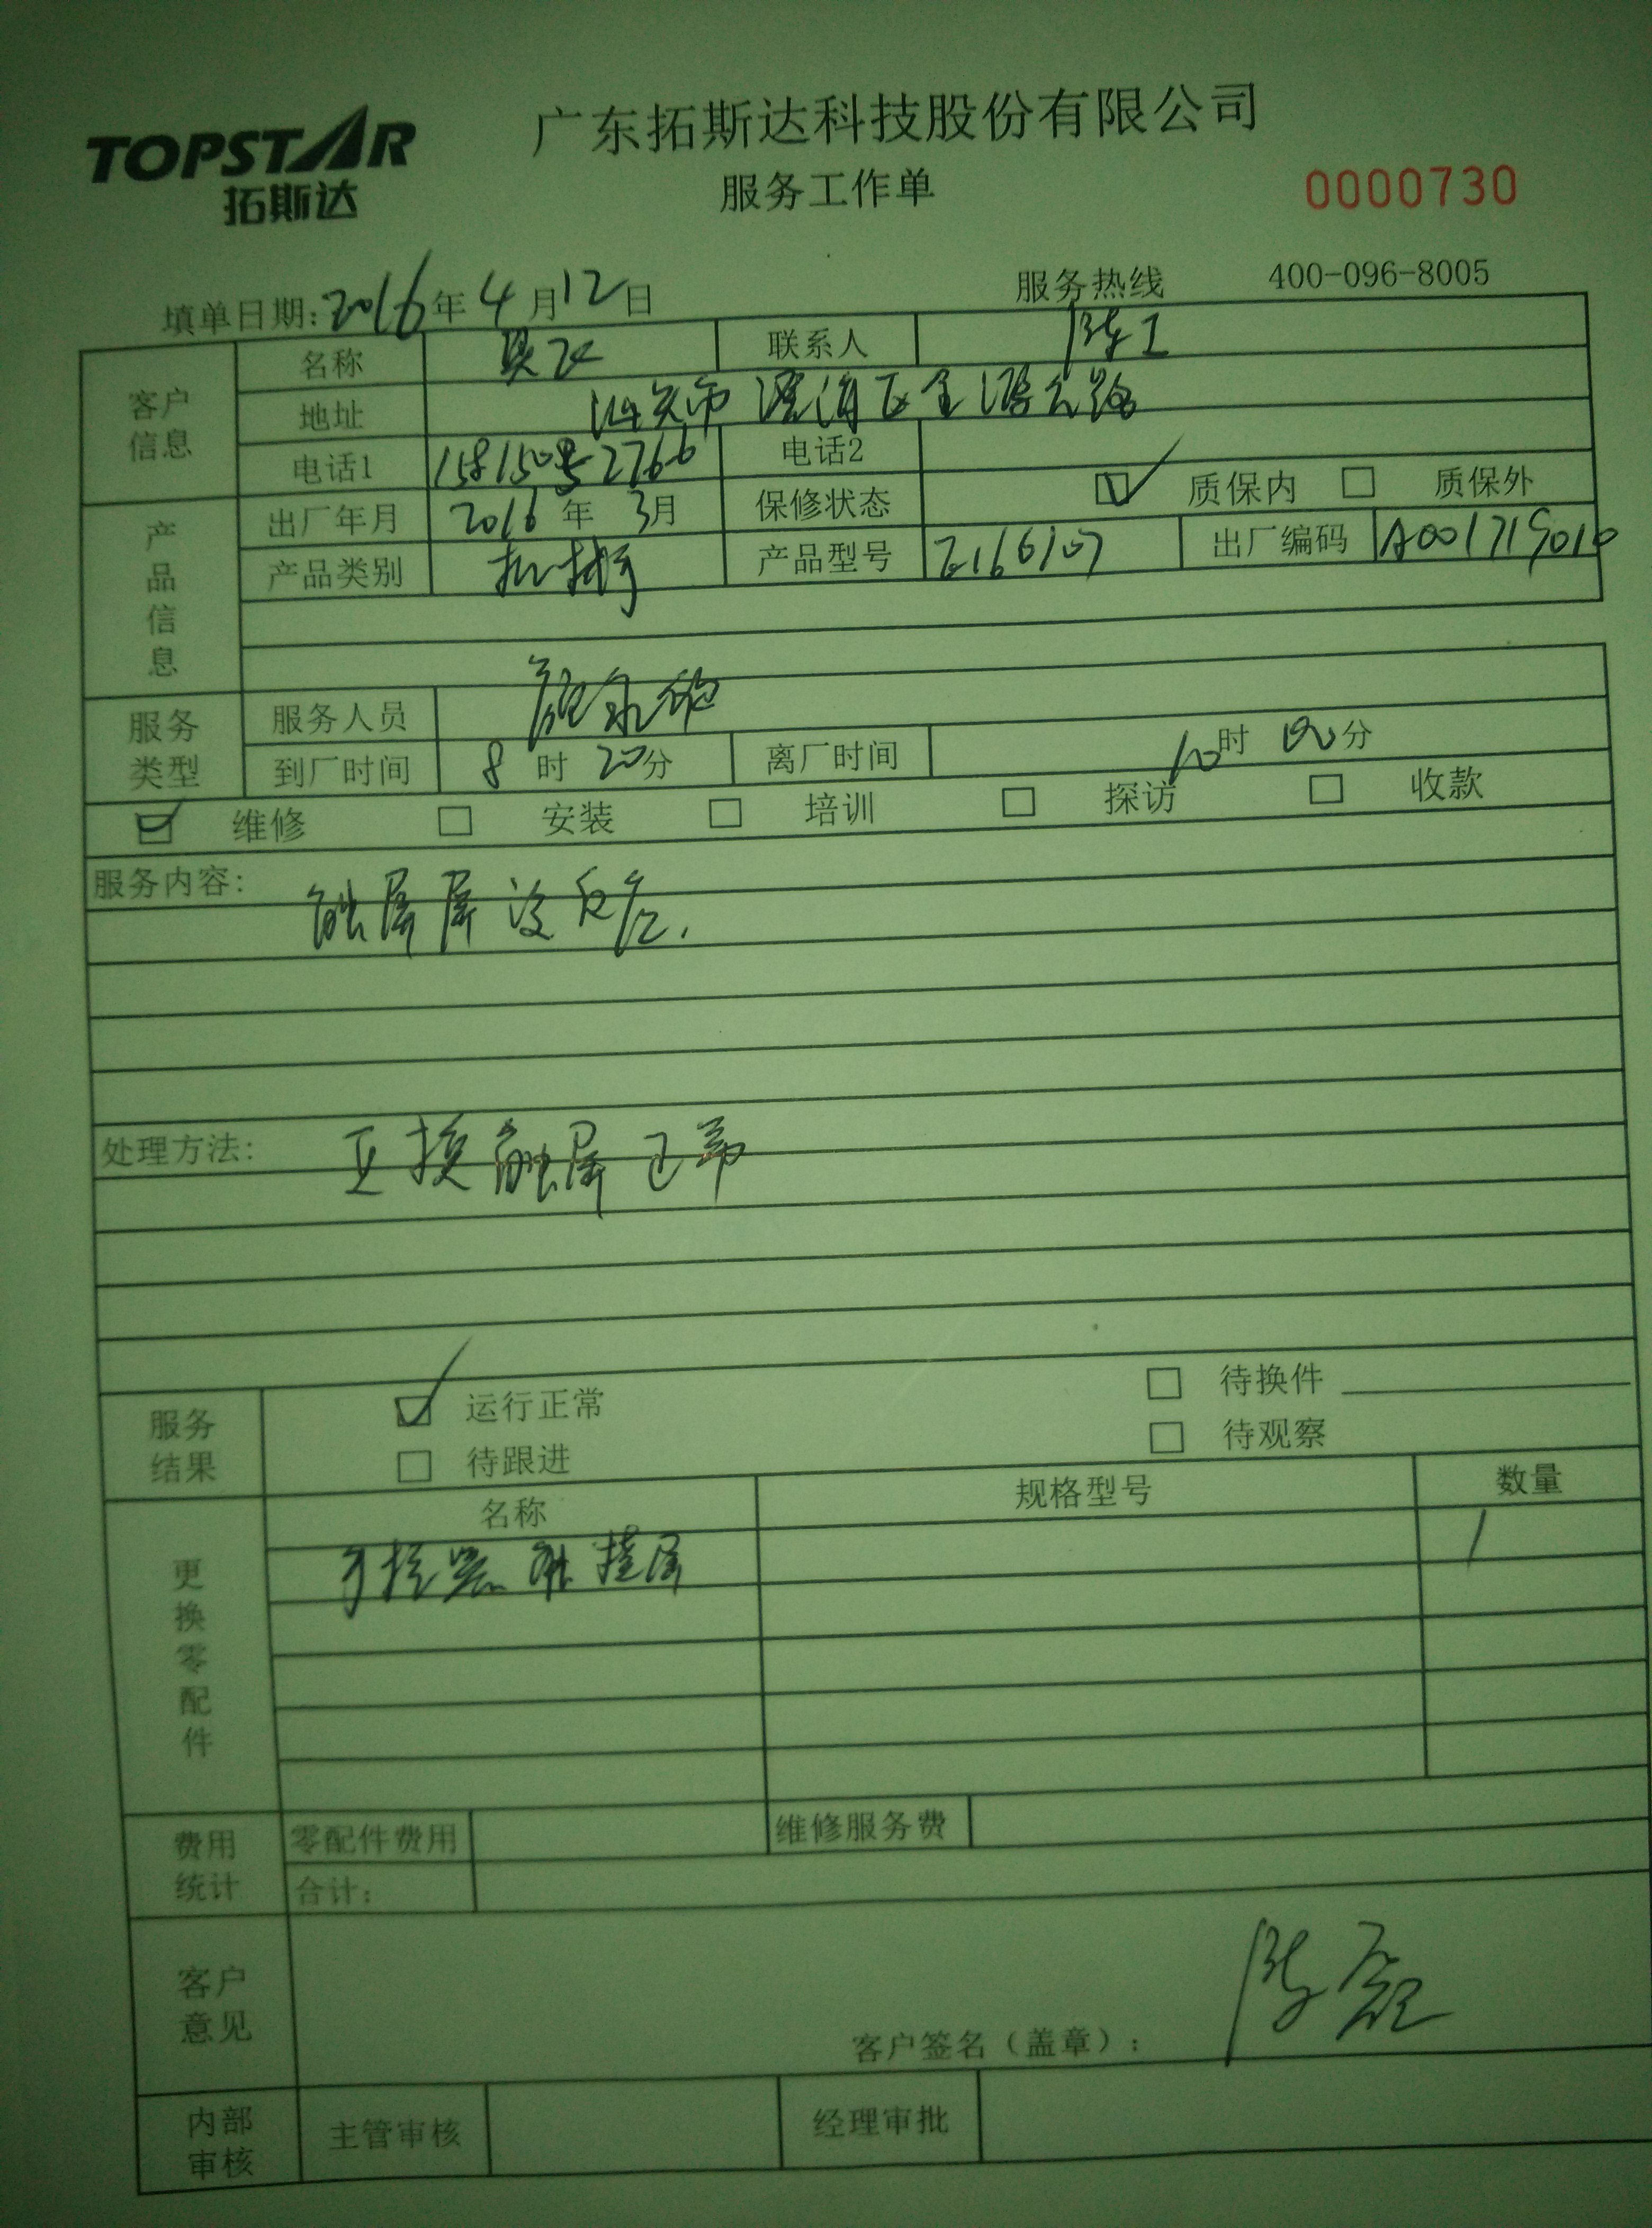 TOPSTAR
拓斯达
广东拓斯达科技股份有限公司
服务工作单
0000730
填单日期: 2016年 4月 12日
服务热线 400-096-8005
客户信息
名称 联系人 陈工
地址 汕头市 区金鸿公路
电话1 电话2
产品信息
出厂年月 2016年 3月 保修状态 质保内 质保外
产品类别 机械手 产品型号 出厂编码 A001719010
服务类型
服务人员
到厂时间 8时 20分 离厂时间 10时 00分
维修 安装 培训 探访 收款
服务内容: 触屏屏没反应.
处理方法: 更换触屏正常
服务结果
运行正常 待换件
待跟进 待观察
更换零配件
名称 规格型号 数量
手控器触摸屏 1
费用统计
零配件费用 维修服务费
合计:
客户意见
客户签名（盖章）: 陈
内部审核
主管审核 经理审批